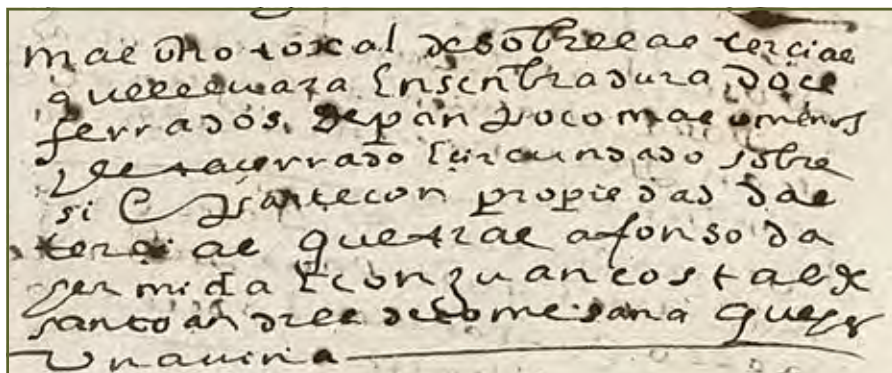 mas otro toxal desobre las tercias
que llevara Ensenbradura doce
ferrados de pan poco mas omenos
y esta cerrado Circundado sobre
si E parte con propiedad das
tercias que trae afonso da
hermida E con Juan costas de
santo andree de comesana que es
Una viña